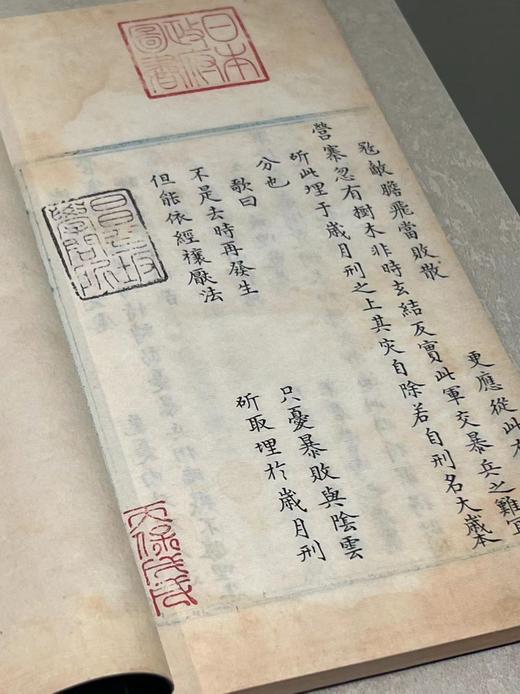 日本政府圖書
冦敵膽飛當敗散 更應從此
營寨忽有樹木非時玄結反實此軍交暴兵之難宜
斫此埋于歲月刑之上其灾自除若自刑名大歲本
分也
歌曰
不是去時再發生 只憂暴敗與陰雲
但能依經禳厭法 斫取埋於歲月刑
昌平坂學問所
天保